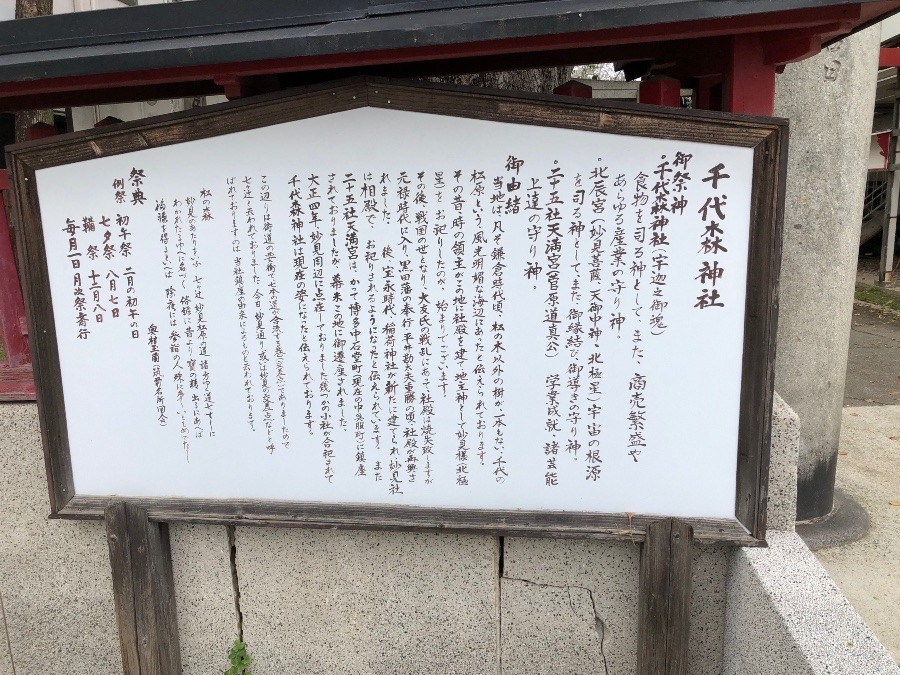 千代森神社
御祭神
・千代森神社(宇迦之御魂)
食物を司る神として、また、商売繁盛や
あらゆる産業の守り神。
・北辰宮(妙見菩薩・天御中神・北極星)宇宙の根源
を司る神として、また、御縁結び、御導きの守り神。
・二十五社天満宮(菅原道真公) 学業成就・諸芸能
上達の守り神。
御由緒
当地は、凡そ鎌倉時代頃、松の木以外の樹が、一本もない、千代の
松原という、風光明媚な海辺にあったと伝えられております。
その昔、時の領主がこの地に社殿を建て、地主神として妙見様(北極
星)をお祀りしたのが、始まりでございます。
その後、戦国の世となり、大友氏の戦乱にあって社殿は焼失致しますが
元禄時代に入り、黒田藩の奉行・平井勘大夫重勝の頃、社殿が再興さ
れました。 後、宝永時代、稲荷神社が新たに建てられ、妙見社
は相殿で、お祀りされるようになったと伝えられています。 また
二十五社天満宮は、かって博多中石堂町(現在の中呉服町)に鎮座
されておりましたが、幕末、この地に御遷座されました。
大正四年、妙見周辺に点在しておりました幾つかの小社が合祀されて
千代森神社は現在の姿になったと伝えられております。
この辺りは街道の要衝で七本の道が合流する巷(交差点)でありましたので
七つ辻と云われておりました、今日、妙見通り或は妙見の交差点などと呼
ばれておりますのは、当社鎮座の由来によるものと云われております。
松の森
妙見のあたりをいふ、七つ辻
わかれたるゆへ名づく、俗説に昔より
福徳を得るといへば、除夜には参詣の人殊に多し
奥村玉蘭(筑前名所図会)
祭典
例祭 初午祭 二月の初午の日
七夕祭 八月七日
鞴祭 十二月八日
毎月一日月次祭斎行